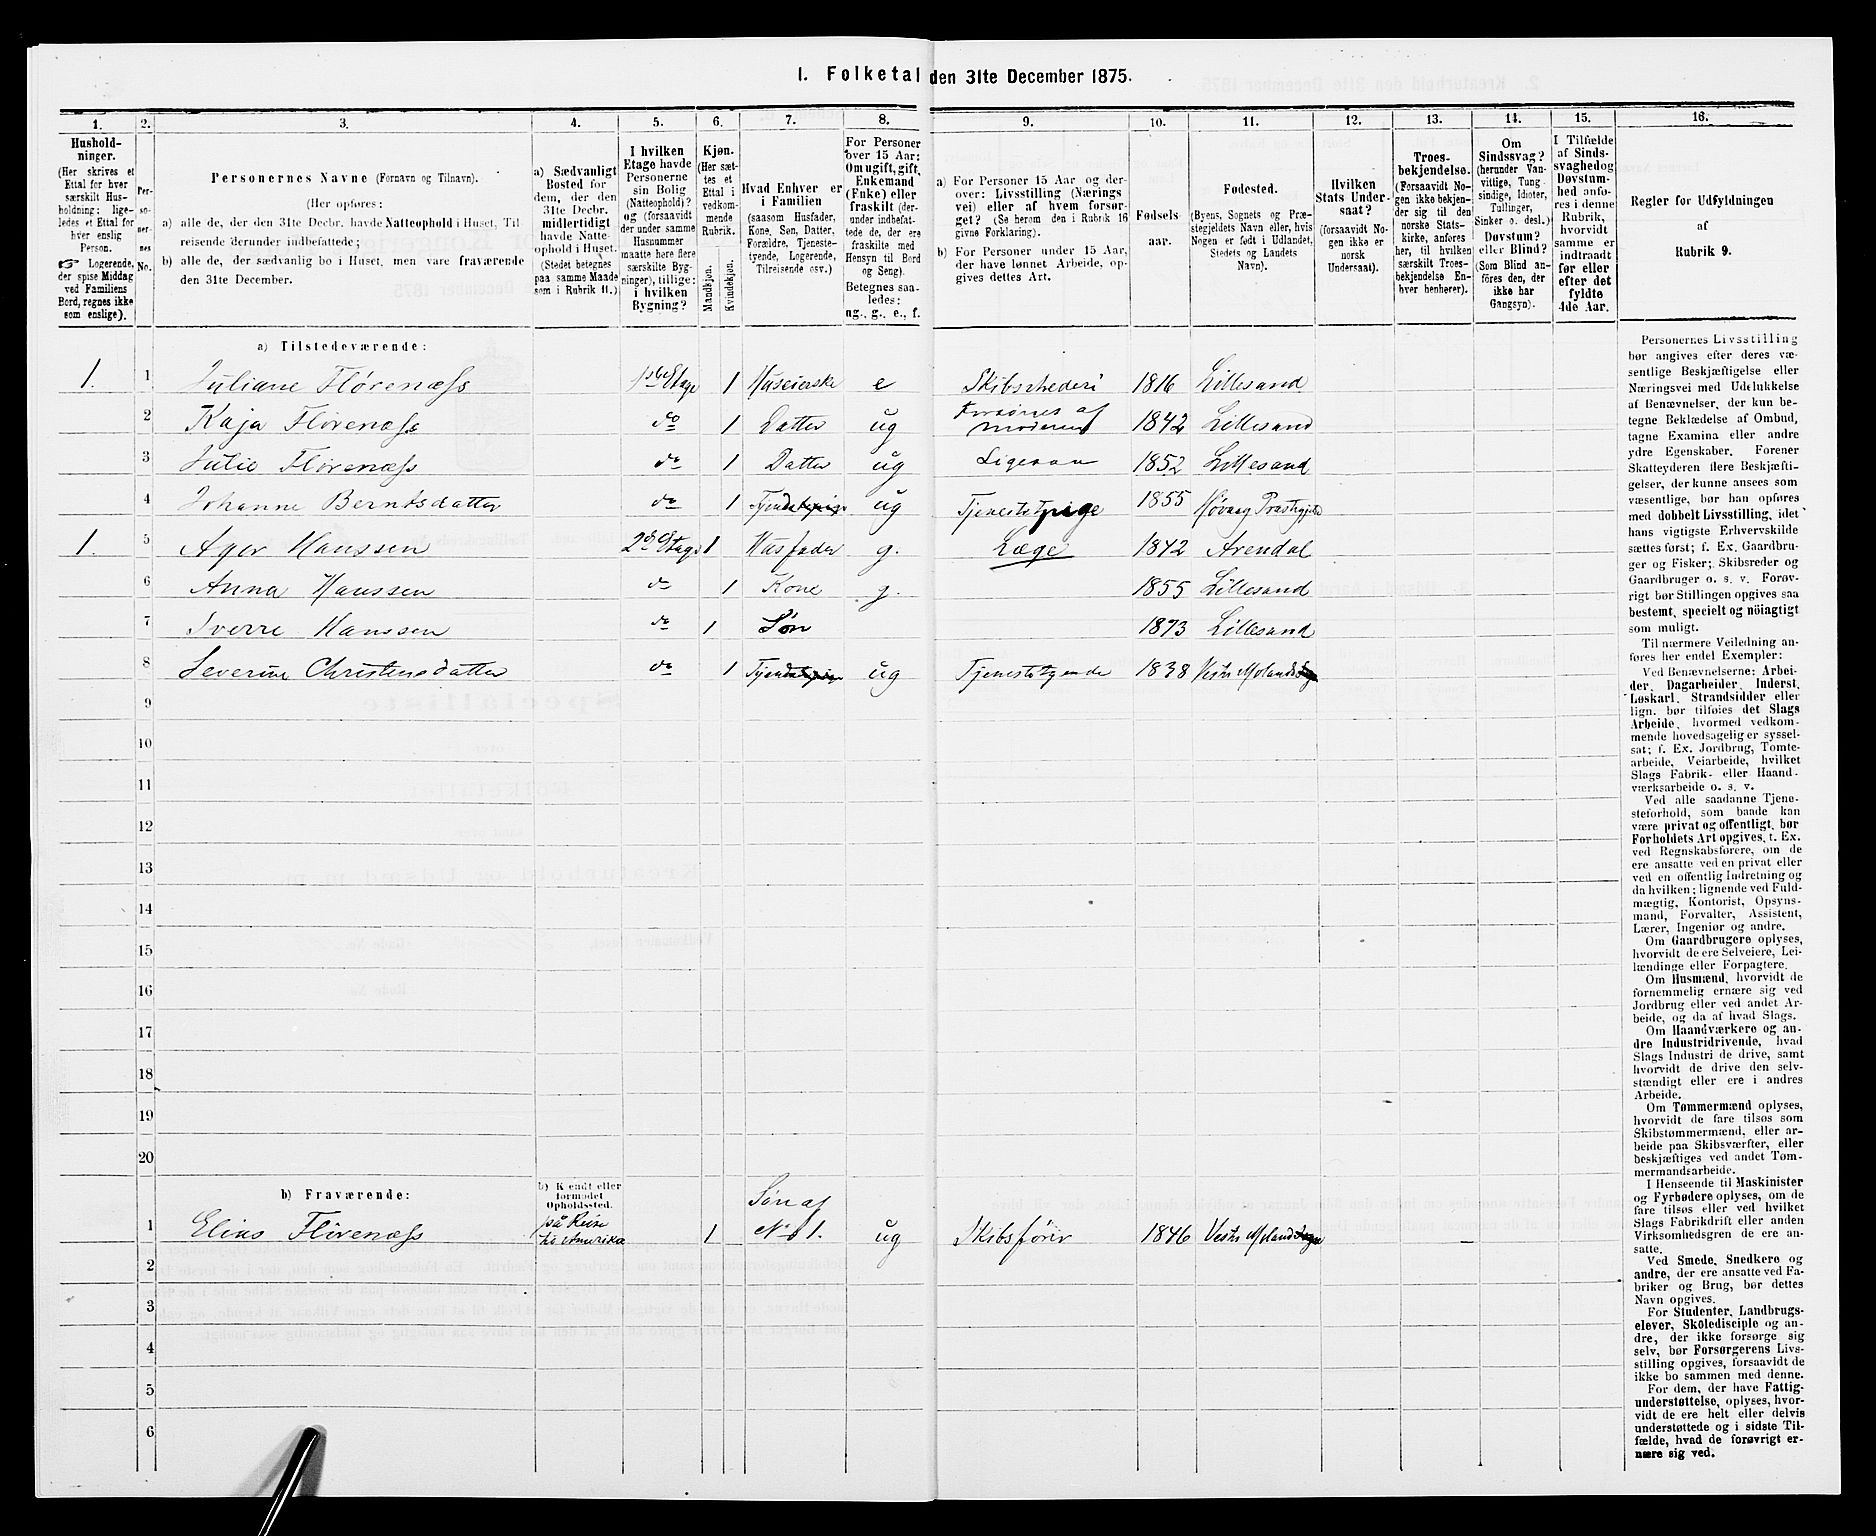 1. Folketal den 31te December 1875.
1. 2. 3. 4. 5. 6. 7. 8. 9. 10. 11. 12. 13. 14. 15. 16.
Hushold-
ninger.
(Her skrives et
Ettal for hver
særskilt Hus-
holdning: lige-
ledes et Ettal for
hver enslig
Person.
☞ Logerende,
der spise Middag
ved Familiens
Bord, regnes ikke
som enslige).
Per-
so-
ner-
nes
No.
Personernes Navne (Fornavn og Tilnavn).
(Her opføres:
a) alle de, der den 31te Decbr. havde Natteophold i Huset, Til-
reisende derunder indbefattede;
b) alle de, der sædvanlig bo i Huset, men vare fraværende
den 31te December.
a) Sædvanligt
Bosted for
dem, der den
31te Decbr.
midlertidigt
havde Natte-
ophold i Huset.
(Stedet betegnes
paa samme Maade
som i Rubrik 11.)
I hvilken
Etage havde
Personerne
sin Bolig
(Natteophold)?
og (forsaavidt
der under samme
Husnummer
maatte høre flere
særskilte Byg-
ninger), tillige:
i hvilken
Bygning?
Kjøn.
(Her sæt-
tes et
Ettal i
vedkom-
mende
Rubrik.
Mandkjøn.
Kvindekjøn.
Hvad Enhver er
i Familien
(saasom Husfader,
Kone, Søn, Datter,
Forældre, Tjeneste-
tyende, Logerende,
Tilreisende osv.)
For Personer
over 15 Aar:
Om ugift, gift,
Enkemand
(Enke) eller
fraskilt (der-
under indbefat-
tede de, der ere
fraskilte med
Hensyn til Bord
og Seng).
Betegnes saa-
ledes:
ug., g., e., f.
a) For Personer 15 Aar og der-
over: Livsstilling (Nærings-
vei) eller af hvem forsør-
get? (Se herom den i Rubrik 16
givne Forklaring).
b) For Personer under 15 Aar,
der have lønnet Arbeide, op-
gives dettes Art.
Fødsels-
aar.
Fødested.
(Byens, Sognets og Præ-
stegjeldets Navn eller, hvis
Nogen er født i Udlandet,
Stedets og Landets
Navn).
Hvilken
Stats Under-
saat?
(forsaavidt No-
gen ikke er
norsk
Undersaat).
Troes-
bekjendelse.
(Forsaavidt No-
gen ikke bekjen-
der sig til den
norske Stats-
kirke, anføres
her, til hvilken
særskilt Troes-
bekjendelse En-
hver henhører).
Om
Sindssvag?
(herunder Van-
vittige, Tung-
sindige, Idioter,
Tullinger,
Sinker o. desl.)
Døvstum?
eller Blind?
(Som Blind an-
føres den, der
ikke har
Gangsyn).
I Tilfælde
af Sinds-
svaghed og
Døvstum-
hed anfø-
res i denne
Rubrik,
hvorvidt
samme er
indtraadt
før eller
efter det
fyldte
4de Aar.
Regler for Udfyldningen
af
Rubrik 9.
a) Tilstedeværende:
1. 1 Juliane Flørenæss 1ste Etage 1 Huseierske e Skibsrhederi 1816 Lillesand
2 Kaja Flørenæss do 1 Datter ug Forsørges af Moderen 1842 Lillesand
3 Julie Flørenæss do 1 Datter ug Ligesaa 1852 Lillesand
4 Johanne Berntsdatter do 1 ug Tjenestepige 1855 Høvaag Præstegjeld
1. 5 Ager Hanssen 2den Etage 1 Husfader g. Læge 1842 Arendal
6 Anna Hanssen do 1 Kone g. 1855 Lillesand
7 Sverre Hanssen do 1 Søn 1873 Lillesand
8 Severine Christensdatter do 1 ug Tjenestetyende 1838 Vestre Moland
9
10
11
12
13
14
15
16
17
18
19
20
b) Fraværende:
b) Kendt eller
formodet
Opholdssted.
1 Elias Flørenæss på Reise til Amerika 1 Søn af No 1. ug Skibsfører 1846 Vestre Moland
2
3
4
5
6
Personernes Livsstilling
bør angives efter deres væ-
sentlige Beskjæftigelse eller
Næringsvei med Udelukkelse
af Benævnelser, der kun be-
tegne Beklædelse af Ombud,
tagne Examina eller andre
ydre Egenskaber. Forener
Skatteyderen flere Beskjæfti-
gelser, der kunne ansees som
væsentlige, bør han opføres
med dobbelt Livsstilling, idet
hans vigtigste Erhvervskilde
sættes først; f. Ex. Gaardbru-
ger og Fisker; Skibsreder og
Gaardbruger o. s. v. Forøv-
rigt bør Stillingen opgives saa
bestemt, specielt og nöiagtigt
som muligt.
Til nærmere Veiledning an-
føres her endel Exempler:
Ved Benævnelserne: Arbei-
der, Dagarbeider, Inderst,
Løskarl, Strandsidder eller
lign. bør tilføies det Slags
Arbeide, hvormed vedkom-
mende hovedsagelig er syssel-
sat; f. Ex. Jordbrug, Tomte-
arbeide, Veiarbeide, hvilket
Slags Fabrik- eller Haand-
værksarbeide o. s. v.
Ved alle saadanne Tjene-
steforhold, som baade kan
være privat og offentligt, bør
Forholdets Art opgives, t. Ex.
ved Regnskabsførere, om de
ere ansatte ved en privat eller
ved en offentlig Indretning og
da hvilken; lignende ved Fuld-
mægtig, Kontorist, Opsyns-
mand, Forvalter, Assistent,
Lærer, Ingeniør og andre.
Om Gaardbrugere oplyses,
hvorvidt de ere Selveiere, Lei-
lændinge eller Forpagtere.
Om Husmænd, hvorvidt de
fornemmelig ernære sig ved
Jordbrug eller ved andet Ar-
beide, og da af hvad Slags.
Om Haandværkere og an-
dre Industridrivende, hvad
Slags Industri de drive, samt
hvorvidt de drive den selv-
stændigt eller ere i andres
Arbeide.
Om Tømmermænd oplyses,
hvorvidt de fare tilsøs som
Skibstømmermænd, eller ar-
beide paa Skibsværfter, eller
beskjæftiges ved andet Tøm-
mermandsarbeide.
I Henseende til Maskinister
og Fyrbødere oplyses, om de
fare tilsøs eller ved hvilket
Slags Fabrikdrift eller anden
Virksomhedsgren de ere an-
satte.
Ved Smede, Snedkere og
andre, der ere ansatte ved Fa-
briker og Brug, bør dettes
Navn opgives.
For Studenter, Landbrugs-
elever, Skoledisciple og an-
dre, der ikke forsørge sig
selv, bør Forsørgerens Livs-
stilling opgives, forsaavidt de
ikke bo sammen med denne.
For dem, der have Fattig-
understøttelse, oplyses, hvor-
vidt de ere helt eller delvis
understøttede og i sidste Til-
fælde, hvad de forøvrigt er-
nære sig ved.